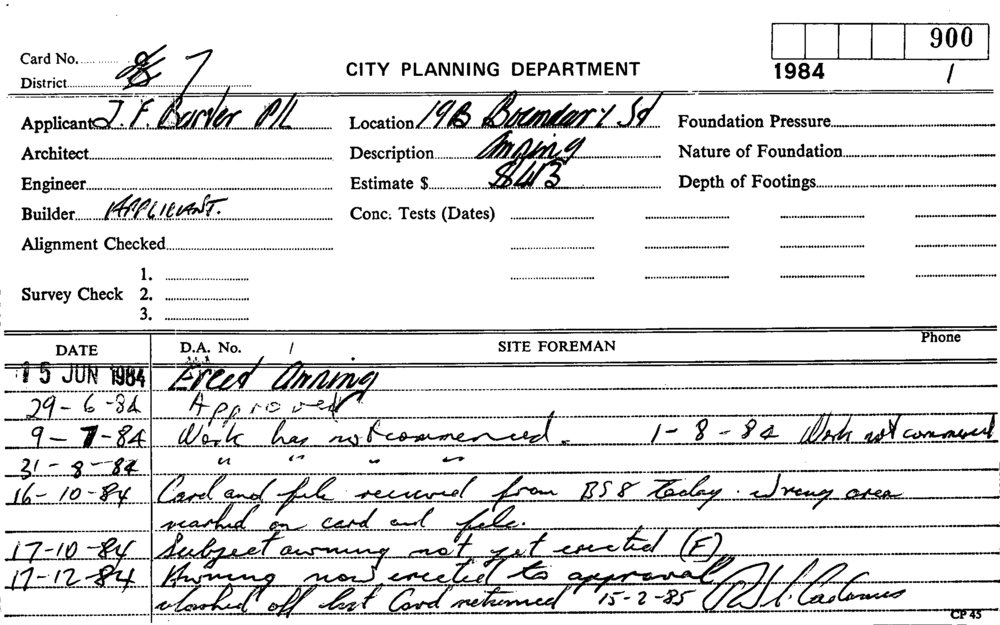 Card No. 7
District
CITY PLANNING DEPARTMENT
900
1984 /
Applicant J. F. P/L
Location 19B Boundary Sd
Foundation Pressure
Architect
Description Awning
Nature of Foundation
Engineer
Estimate $ 843
Depth of Footings
Builder APPLICANT.
Conc. Tests (Dates)
Alignment Checked
1.
Survey Check 2.
3.
DATE D.A. No. / SITE FOREMAN Phone
15 JUN 1984 Erect Awning
29-6-84 Approved
9-7-84 Work has not commenced. 1-8-84 Work not commenced
31-8-84 " " " "
16-10-84 Card and file received from BS8 today. Wrong area
marked on card and file.
17-10-84 Subject awning not yet erected (F)
17-12-84 Awning now erected to approval
Marked off list Card returned 15-2-85
CP 45